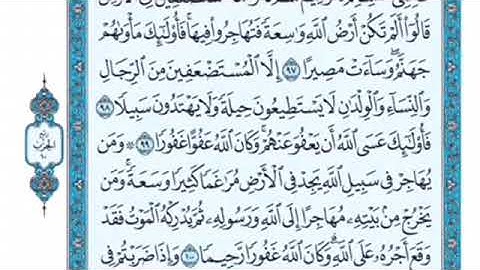 قَالُوٓا۟ أَلَمْ تَكُنْ أَرْضُ ٱللَّهِ وَٰسِعَةً فَتُهَاجِرُوا۟ فِيهَا ۚ فَأُو۟لَٰٓئِكَ مَأْوَىٰهُمْ
جَهَنَّمُ ۖ وَسَآءَتْ مَصِيرًا ٩٧ إِلَّا ٱلْمُسْتَضْعَفِينَ مِنَ ٱلرِّجَالِ
وَٱلنِّسَآءِ وَٱلْوِلْدَٰنِ لَا يَسْتَطِيعُونَ حِيلَةً وَلَا يَهْتَدُونَ سَبِيلًا ٩٨
فَأُو۟لَٰٓئِكَ عَسَى ٱللَّهُ أَن يَعْفُوَ عَنْهُمْ ۚ وَكَانَ ٱللَّهُ عَفُوًّا غَفُورًا ٩٩ ۞ وَمَن
يُهَاجِرْ فِى سَبِيلِ ٱللَّهِ يَجِدْ فِى ٱلْأَرْضِ مُرَٰغَمًا كَثِيرًا وَسَعَةً ۚ وَمَن
يَخْرُجْ مِنۢ بَيْتِهِۦ مُهَاجِرًا إِلَى ٱللَّهِ وَرَسُولِهِۦ ثُمَّ يُدْرِكْهُ ٱلْمَوْتُ فَقَدْ
وَقَعَ أَجْرُهُۥ عَلَى ٱللَّهِ ۗ وَكَانَ ٱللَّهُ غَفُورًا رَّحِيمًا ١٠٠ وَإِذَا ضَرَبْتُمْ فِى